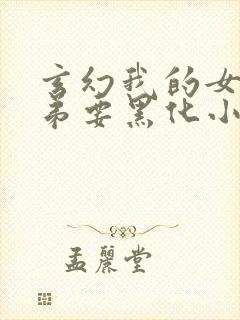 玄幻我的女
弟要黑化小
孟丽堂